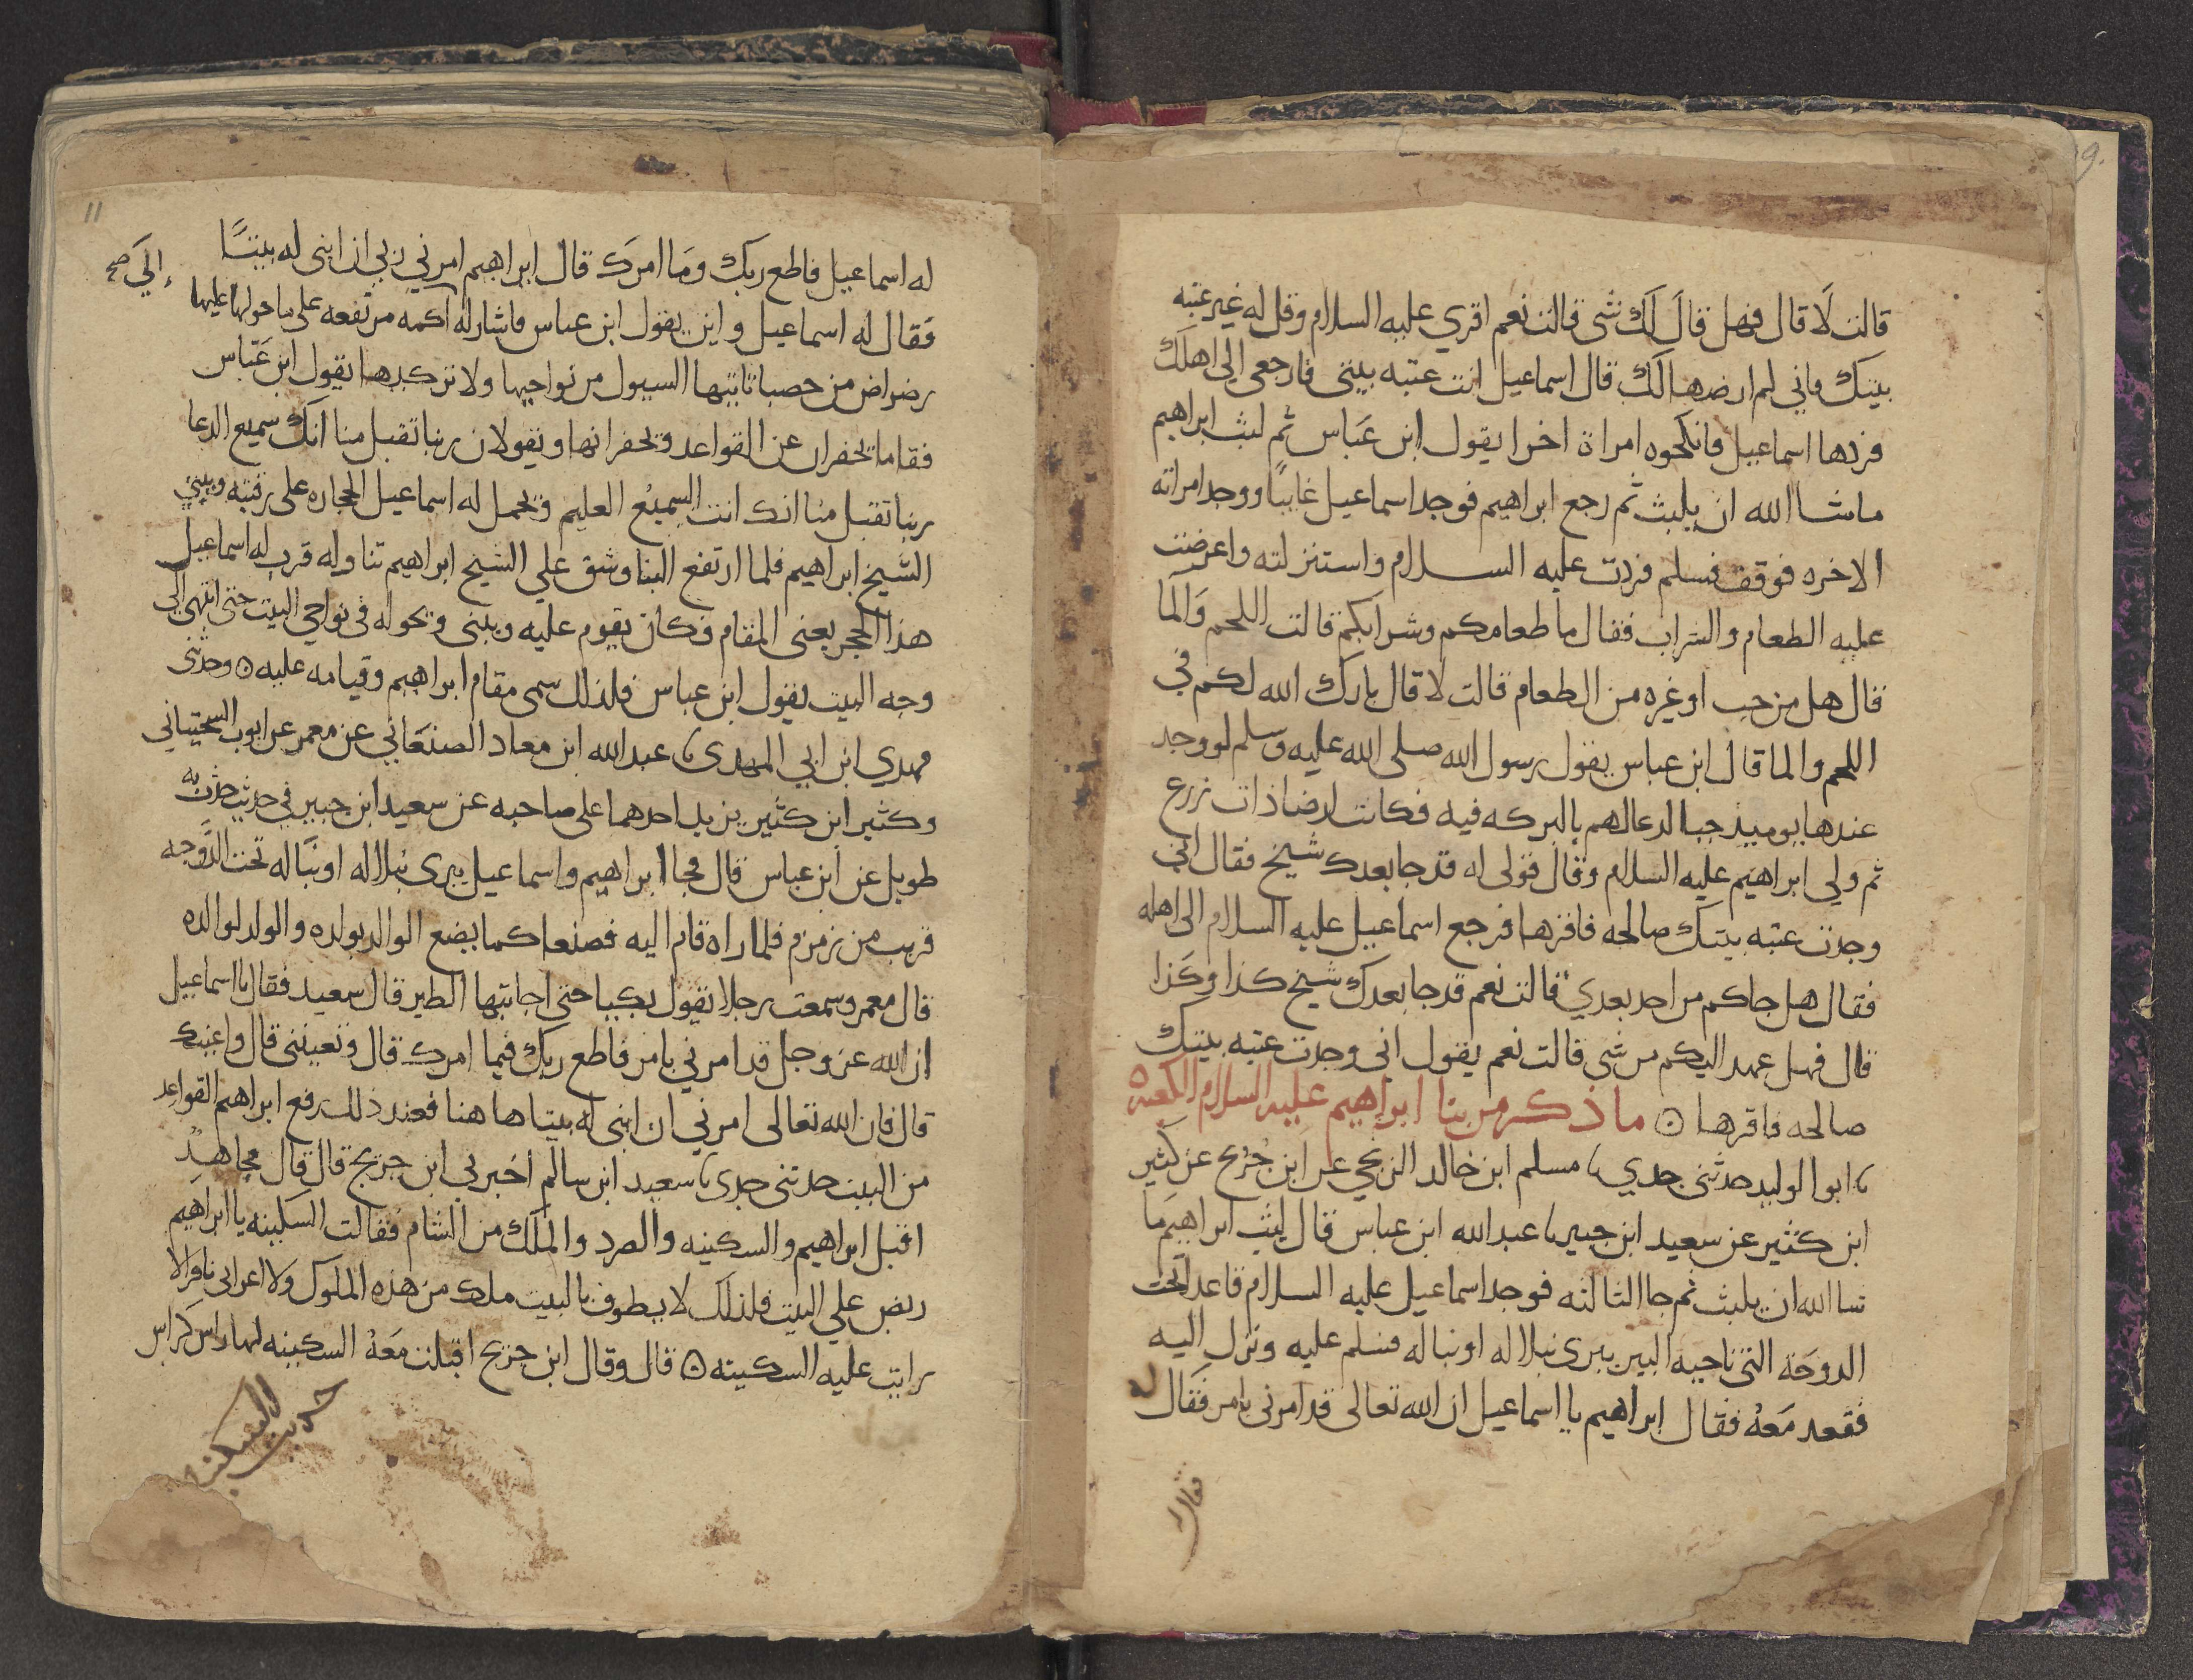 قالت لا قال فهل قال لك شي قالت نعم اقري عليه السلام وقل له غير عتبه
بيتك فاني لم ارضها لك قال اسماعيل انت عتبه بيتي فارجعي الي اهلك
فردها اسماعيل فانكحوه امراة اخرا يقول ابن عباس ثم لبث ابراهيم
ماشا الله ان يلبث ثم رجع ابراهيم فوجد اسماعيل غايبا ووجد امراته
الاخره فوقف فسلم فردت عليه السلام واستنزلته واعرضت
عليه الطعام والشراب فقال ما طعامكم وشرابكم قالت اللحم والما
قال هل من حب او غيره من الطعام قالت لا قال بارك الله لكم في
اللحم والما قال ابن عباس يقول رسول الله صلى الله عليه وسلم لو وجد
عندها يوميذ حبا لدعا لهم بالبركه فيه فكانت ارضا ذات زرع
ثم ولي ابراهيم عليه السلام وقال قولي له قد جا بعدك شيخ فقال اني
وجدت عتبه بيتك صالحه فاقرها فرجع اسماعيل عليه السلام الى اهله
فقال هل جاكم من احد بعدي قالت نعم قد جا بعدك شيخ كذا وكذا
قال فهل عهد اليكم من شي قالت نعم يقول اني وجدت عتبه بيتك
صالحه فاقرها ۞ ما ذكر من بنا ابراهيم عليه السلام الكعبة
ابو الوليد حدثني جدي مسلم ابن خالد الزنجي عن ابن جريج عن كثير
ابن كثير عن سعيد ابن جبير عبد الله ابن عباس قال لبث ابراهيم ما
شا الله ان يلبث ثم جا الثالثه فوجد اسماعيل عليه السلام قاعد اتحت
الدوحة التي ناحيه البير يبري نبلا له او نبا له فسلم عليه ونزل اليه
فقعد معه فقال ابراهيم يا اسماعيل ان الله تعالى قد امرني بامر فقال له
فقال
11
له اسماعيل فاطع ربك وما امرك قال ابراهيم امرني ربي ان ابني له بيتا
الي صح
فقال له اسماعيل واين يقول ابن عباس فاشار له اكمه مرتفعه على ما حولها عليها
رضراض من حصبا تاتيها السيول من نواحيها ولا تركبها يقول ابن عباس
فقاما يحفران عن القواعد ويحفرانها ويقولان ربنا تقبل منا انك سميع الدعا
ربنا تقبل منا انك انت السميع العليم ويحمل له اسماعيل الحجاره على رقبته ويبني
الشيخ ابراهيم فلما ارتفع البنا وشق علي الشيخ ابراهيم تناوله قرب له اسماعيل
هذا الحجر يعني المقام فكان يقوم عليه ويبني ويحوله في نواحي البيت حتى انتهى الى
وجه البيت يقول ابن عباس فلذلك سمى مقام ابراهيم وقيامه عليه ۞ وحدثني
مهدي ابن ابي المهدي عبد الله ابن معاد الصنعاني عن معمر عن ايوب السختياني
وكثير ابن كثير يزيد احدهما على صاحبه عن سعيد ابن جبير في حديث حدث به
طويل عن ابن عباس قال فجا ابراهيم واسماعيل يبرى نبلا له او نبا له تحت الدوحه
قريب من زمزم فلما راه قام اليه فصنعا كما يصنع الوالد بولده والولد لوالده
قال معمر وسمعت رجلا يقول بكيا حتى اجابتهما الطير قال سعيد فقال يا اسماعيل
ان الله عز وجل قد امرني بامر فاطع ربك فيما امرك قال وتعينني قال واعينك
قال فان الله تعالى امرني ان ابني له بيتا ها هنا فعند ذلك رفع ابراهيم القواعد
من البيت حدثني جدي سعيد ابن سالم اخبرني ابن جريج قال قال مجاهد
اقبل ابراهيم والسكينه والصرد والملك من الشام فقالت السكينه يا ابراهيم
ربض علي البيت فلذلك لا يطوف بالبيت ملك من هذه الملوك ولا اعرابي نافر الا
رايت عليه السكينه ۞ قال وقال ابن جريج اقبلت معه السكينه لها راس كراس
حديث السكينه